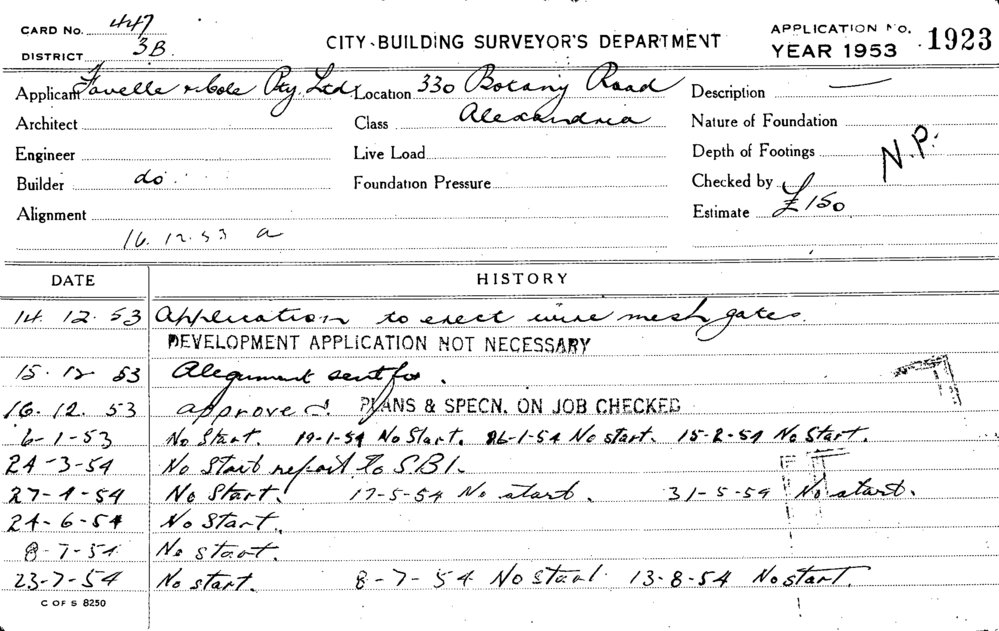 CARD No. 447
DISTRICT 3B.
CITY BUILDING SURVEYOR'S DEPARTMENT
APPLICATION No. 1923
YEAR 1953
Applicant Favelle & Cole Pty. Ltd. Location 330 Botany Road Description —
Architect Class Alexandria Nature of Foundation
Engineer Live Load Depth of Footings N.P.
Builder do Foundation Pressure Checked by
Alignment Estimate £150
16.12.53 a
DATE HISTORY
14.12.53 Application to erect wire mesh gates.
DEVELOPMENT APPLICATION NOT NECESSARY
15.12.53 Alegnment sent for.
16.12.53 approved. PLANS & SPECN. ON JOB CHECKED
6-1-53 No Start. 19-1-54 No Start. 26-1-54 No start. 15-2-54 No Start.
24-3-54 No Start report to SBI.
27-4-54 No Start. 17-5-54 No start. 31-5-54 No start.
24-6-54 No Start.
8-7-54 No start.
23-7-54 No start. 8-7-54 No Start 13-8-54 No start.
C OF S 8250